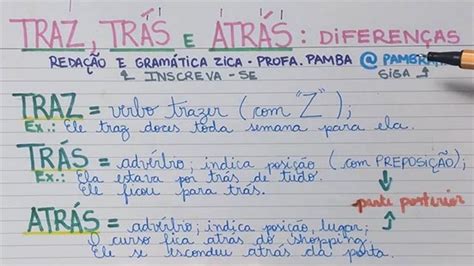 TRAZ, TRÁS E ATRÁS: DIFERENÇAS
REDAÇÃO E GRAMÁTICA ZICA - PROFA. PAMBA @PAMBR
INSCREVA-SE SIGA
TRAZ = verbo trazer (com "Z");
Ex.: Ele traz doces toda semana para ela.
TRÁS = advérbio; indica posição (com PREPOSIÇÃO);
Ex.: Ela estava por trás de tudo.
Ele ficou para trás.
parte posterior
ATRÁS = advérbio; indica posição, lugar;
O curso fica atrás do shopping.
Ele se escondeu atrás da porta.